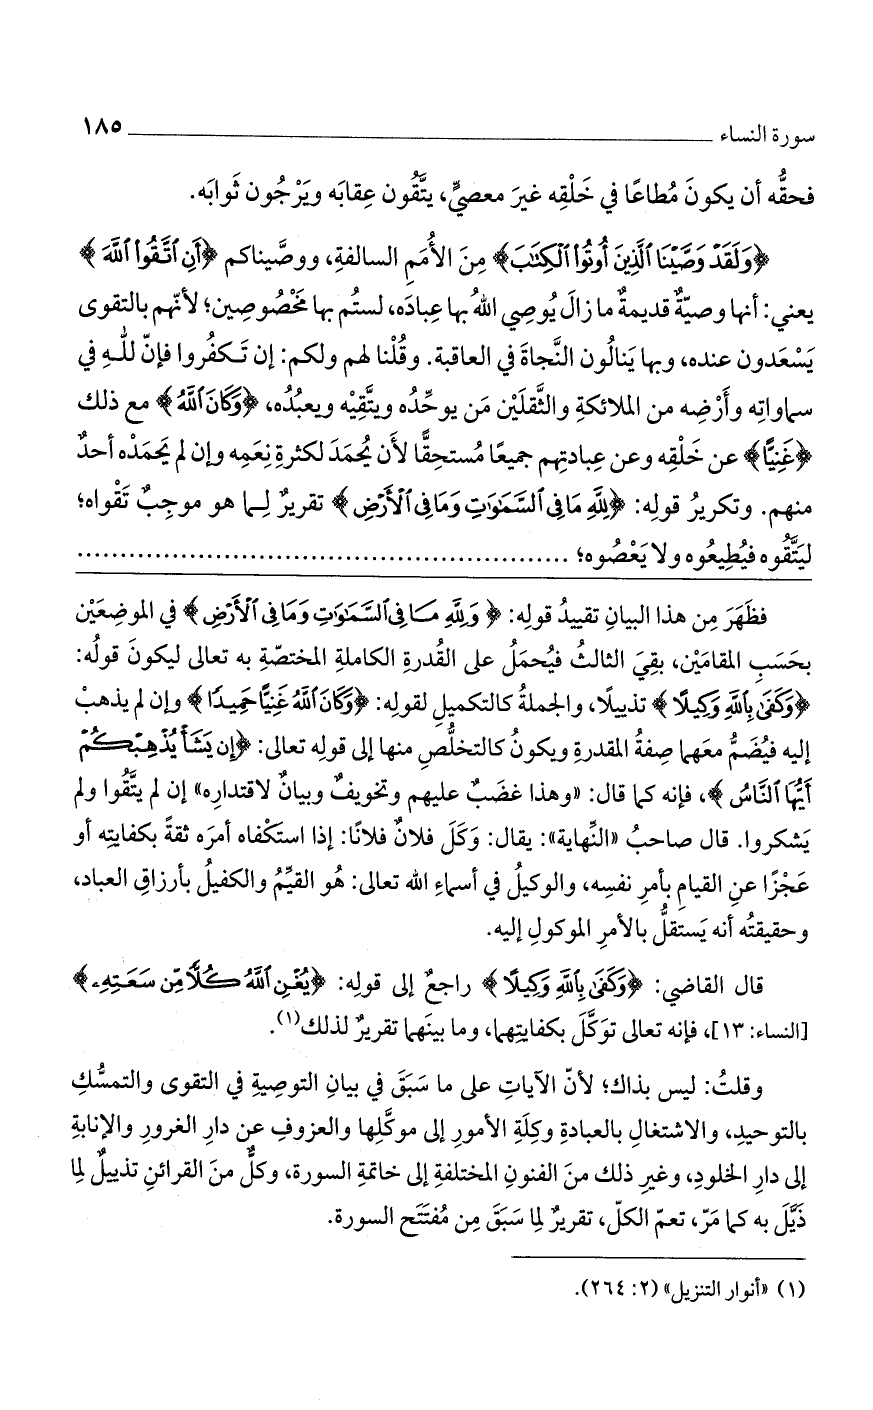 سورة النساء ١٨٥
فحقُّه أن يكونَ مُطاعًا في خَلْقِه غيرَ معصيٍّ، يتَّقُون عِقابَه ويَرْجُون ثَوابَه.
﴿وَلَقَدْ وَصَّيْنَا ٱلَّذِينَ أُوتُوا۟ ٱلْكِتَـٰبَ﴾ مِنَ الأُمَمِ السالفةِ، ووصَّيناكم ﴿أَنِ ٱتَّقُوا۟ ٱللَّهَ﴾
يعني: أنها وصيّةٌ قديمةٌ ما زالَ يُوصِي اللهُ بها عِبادَه، لستُم بها مَخْصُوصين؛ لأنّهم بالتقوى
يَسْعَدون عنده، وبها يَنالُون النَّجاةَ في العاقبة. وقُلْنا لهم ولكم: إن تَكفُروا فإنّ للـهِ في
سماواتِه وأَرْضِه من الملائكةِ والثَّقلَيْن مَن يوحِّدُه ويتَّقِيْه ويعبُدُه، ﴿وَكَانَ ٱللَّهُ﴾ مع ذلك
﴿غَنِيًّا﴾ عن خَلْقِه وعن عِبادتِهم جميعًا مُستحِقًّا لأَن يُحمَدَ لكثرةِ نِعَمِه وإن لم يَحمَدْه أحدٌ
منهم. وتكريرُ قولِه: ﴿لِلَّهِ مَا فِى ٱلسَّمَـٰوَٰتِ وَمَا فِى ٱلْأَرْضِ﴾ تقريرٌ لِـما هو موجِبٌ تَقْواه؛
ليَتَّقُوه فيُطِيعُوه ولا يَعْصُوه؛ ..................................................
فظَهَرَ مِن هذا البيانِ تقييدُ قولِه: ﴿وَلِلَّهِ مَا فِى ٱلسَّمَـٰوَٰتِ وَمَا فِى ٱلْأَرْضِ﴾ في الموضِعَيْن
بحَسَبِ المقامَيْن، بقِيَ الثالثُ فيُحمَلُ على القُدرةِ الكاملةِ المختصّةِ به تعالى ليكونَ قولُه:
﴿وَكَفَىٰ بِٱللَّهِ وَكِيلًا﴾ تذييلًا، والجملةُ كالتكميلِ لقولِه: ﴿وَكَانَ ٱللَّهُ غَنِيًّا حَمِيدًا﴾ وإن لم يذهبْ
إليه فيُضَمُّ معَهما صِفةُ المقدرةِ ويكونُ كالتخلُّصِ منها إلى قولِه تعالى: ﴿إِن يَشَأْ يُذْهِبْكُمْ
أَيُّهَا ٱلنَّاسُ﴾، فإنه كما قال: «وهذا غضَبٌ عليهم وتخويفٌ وبيانٌ لاقتدارِه» إن لم يتَّقُوا ولم
يَشكروا. قال صاحبُ «النِّهاية»: يقال: وَكَلَ فلانٌ فلانًا: إذا استَكْفاه أمرَه ثقةً بكفايتِه أو
عَجْزًا عنِ القيامِ بأمرِ نفسِه، والوكيلُ في أسماءِ الله تعالى: هُو القيِّمُ والكفيلُ بأرزاقِ العباد،
وحقيقتُه أنه يَستقلُّ بالأمرِ الموكولِ إليه.
قال القاضي: ﴿وَكَفَىٰ بِٱللَّهِ وَكِيلًا﴾ راجعٌ إلى قولِه: ﴿يُغْنِ ٱللَّهُ كُلًّا مِّن سَعَتِهِۦ﴾
[النساء: ١٣]، فإنه تعالى توَكَّلَ بكفايتِهما، وما بينَهما تقريرٌ لذلك(١).
وقلتُ: ليس بذاك؛ لأنّ الآياتِ على ما سَبَقَ في بيانِ التوصِيةِ في التقوى والتمسُّكِ
بالتوحيدِ، والاشتغالِ بالعبادةِ وكِلَةِ الأمورِ إلى موكَّلِها والعزوفِ عن دارِ الغرورِ والإنابةِ
إلى دارِ الخلودِ، وغيرِ ذلك منَ الفنونِ المختلفةِ إلى خاتمةِ السورة، وكلٌّ منَ القرائنِ تذييلٌ لِما
ذَيَّلَ به كما مَرّ، تعمّ الكلّ، تقريرٌ لِما سَبَقَ مِن مُفتَتَح السورة.
(١) «أنوار التنزيل» (٢: ٢٦٤).